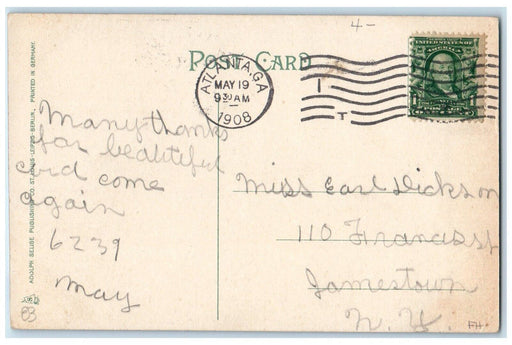 4-
POST CARD
ATLANTA, GA
MAY 19
9 30 AM
1908
1
T
UNITED STATES OF AMERICA
ADOLPH SELIGE PUBLISHING CO. ST. LOUIS-LEIPZIG-BERLIN, PRINTED IN GERMANY.
Many thanks
for beautiful
card come
again
6239
May
Miss Earl Dickson
110 Francis St
Jamestown
N. Y.
83
FH